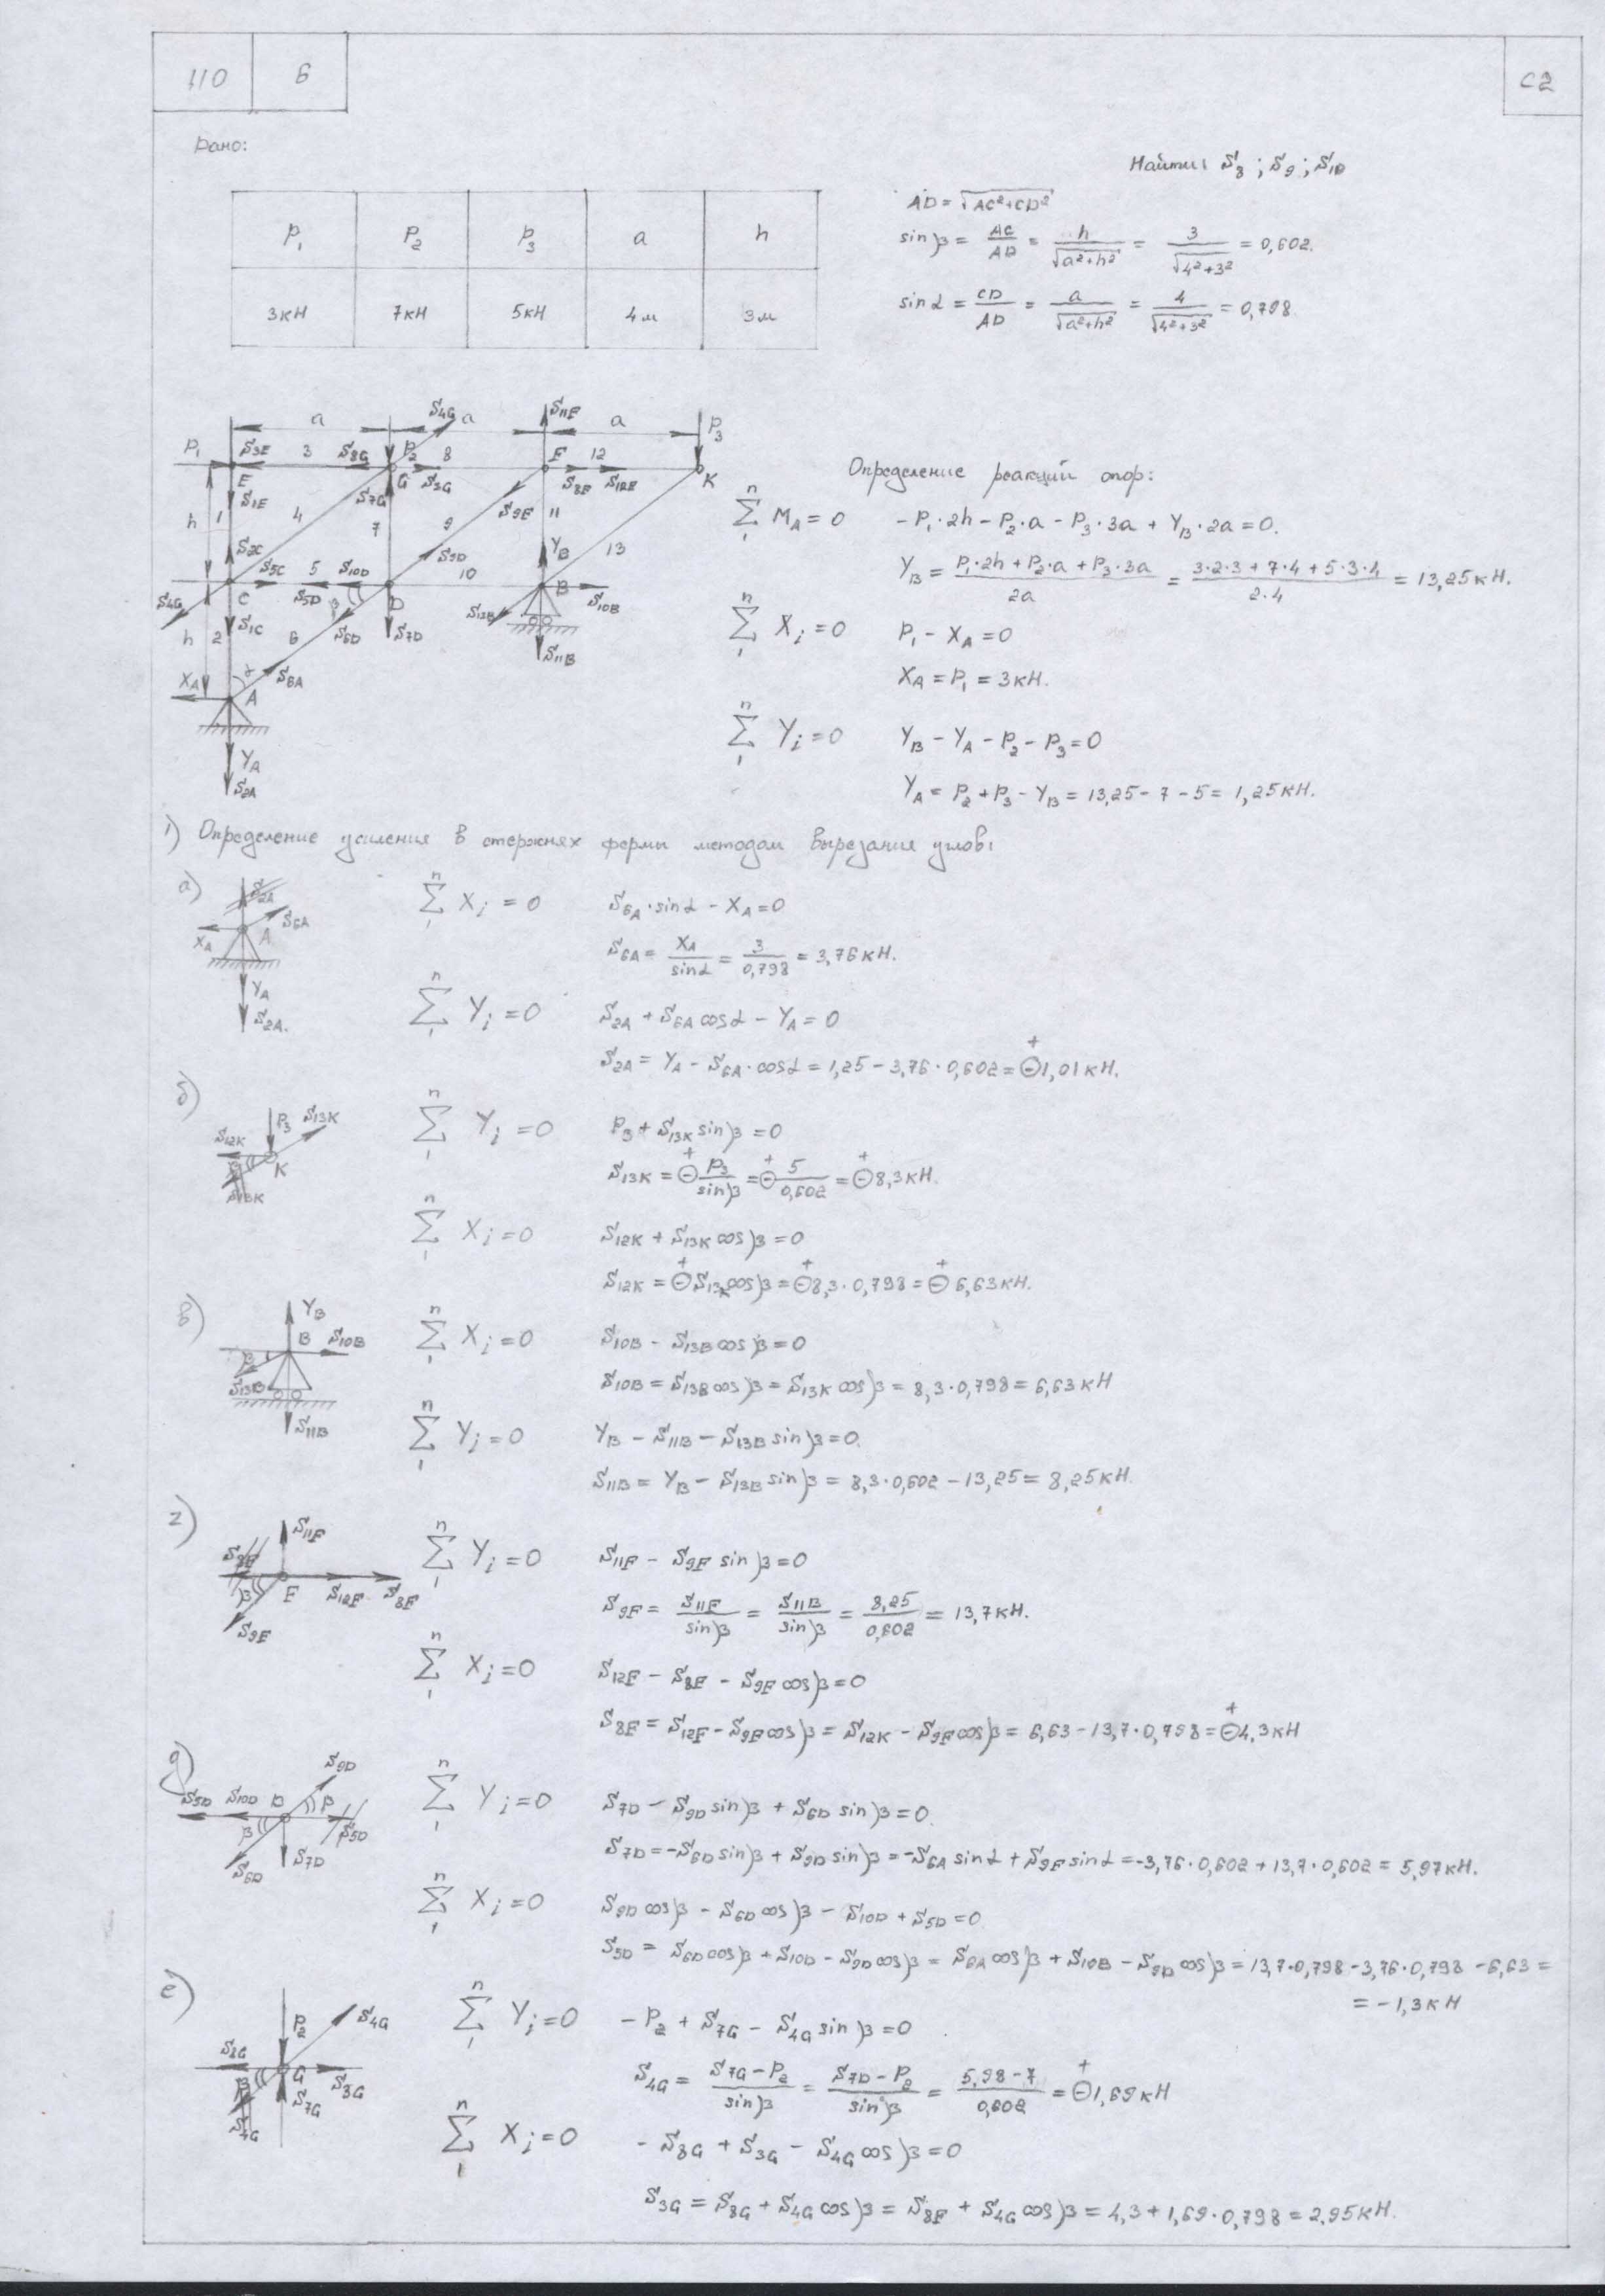 110 6 С2
Дано:
Найти: S8 ; S9 ; S10
P1 P2 P3 a h
3кН 7кН 5кН 4м 3м
AD = √AC²+CD²
sinβ = AC/AD = h/√a²+h² = 3/√4²+3² = 0,602.
sinα = CD/AD = a/√a²+h² = 4/√4²+3² = 0,798
a S4G a S11F a P3
P1 S3E 3 S8G P2 8 F 12
E S1E S7G G S3G S8F S12F K
h 1 4 7 9 S9F 11
S2C S9D YB 13
S5C 5 S10D 10
S4G C S5D β D B S10B
h 2 S1C 6 S6D S7D S13B
S11B
XA α S6A
A
YA
S2A
Определение реакций опор:
n∑1 MA = 0 -P1·2h - P2·a - P3·3a + YB·2a = 0.
YB = P1·2h + P2·a + P3·3a / 2a = 3·2·3 + 7·4 + 5·3·4 / 2·4 = 13,25кН.
n∑1 Xi = 0 P1 - XA = 0
XA = P1 = 3кН.
n∑1 Yi = 0 YB - YA - P2 - P3 = 0
YA = P2 + P3 - YB = 13,25 - 7 - 5 = 1,25кН.
1) Определение усиления в стержнях фермы методом вырезания углов:
а) S2A S6A XA A YA S2A.
n∑1 Xi = 0 S6A·sinα - XA = 0
S6A = XA/sinα = 3/0,798 = 3,76кН.
n∑1 Yi = 0 S2A + S6A cosα - YA = 0
S2A = YA - S6A·cosα = 1,25 - 3,76·0,602 = ⊖+ 1,01кН.
б) P3 S13K S12K K S13K
n∑1 Yi = 0 P3 + S13K sinβ = 0
S13K = ⊖+ P3/sinβ = ⊖+ 5/0,602 = ⊖+ 8,3кН.
n∑1 Xi = 0 S12K + S13K cosβ = 0
S12K = ⊖+ S13K cosβ = ⊖+ 8,3·0,798 = ⊖+ 6,63кН.
в) YB B S10B β S13B S11B
n∑1 Xi = 0 S10B - S13B cosβ = 0
S10B = S13B cosβ = S13K cosβ = 8,3·0,798 = 6,63кН
n∑1 Yi = 0 YB - S11B - S13B sinβ = 0.
S11B = YB - S13B sinβ = 8,3·0,602 - 13,25 = 8,25кН.
г) S11F S8F β F S12F S8F S9F
n∑1 Yi = 0 S11F - S9F sinβ = 0
S9F = S11F/sinβ = S11B/sinβ = 8,25/0,602 = 13,7кН.
n∑1 Xi = 0 S12F - S8F - S9F cosβ = 0
S8F = S12F - S9F cosβ = S12K - S9F cosβ = 6,63 - 13,7·0,798 = ⊖+ 4,3кН
д) S9D S5D S10D D β β S5D S6D S7D
n∑1 Yi = 0 S7D - S9D sinβ + S6D sinβ = 0.
S7D = -S6D sinβ + S9D sinβ = -S6A sinα + S9F sinα = -3,76·0,602 + 13,7·0,602 = 5,97кН.
n∑1 Xi = 0 S9D cosβ - S6D cosβ - S10D + S5D = 0
S5D = S6D cosβ + S10D - S9D cosβ = S6A cosβ + S10B - S9D cosβ = 13,7·0,798 - 3,76·0,798 - 6,63 =
= -1,3кН
е) P2 S4G S8G G S3G β S7G S4G
n∑1 Yi = 0 -P2 + S7G - S4G sinβ = 0
S4G = S7G-P2/sinβ = S7D-P2/sinβ = 5,98-7/0,602 = ⊖+ 1,69кН
n∑1 Xi = 0 - S8G + S3G - S4G cosβ = 0
S3G = S8G + S4G cosβ = S8F + S4G cosβ = 4,3 + 1,69·0,798 = 2,95кН.